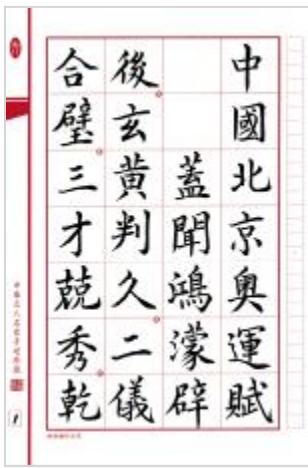 中國北京奧運賦
蓋聞鴻濛辟
後玄黃判久二儀
合璧三才兢秀乾